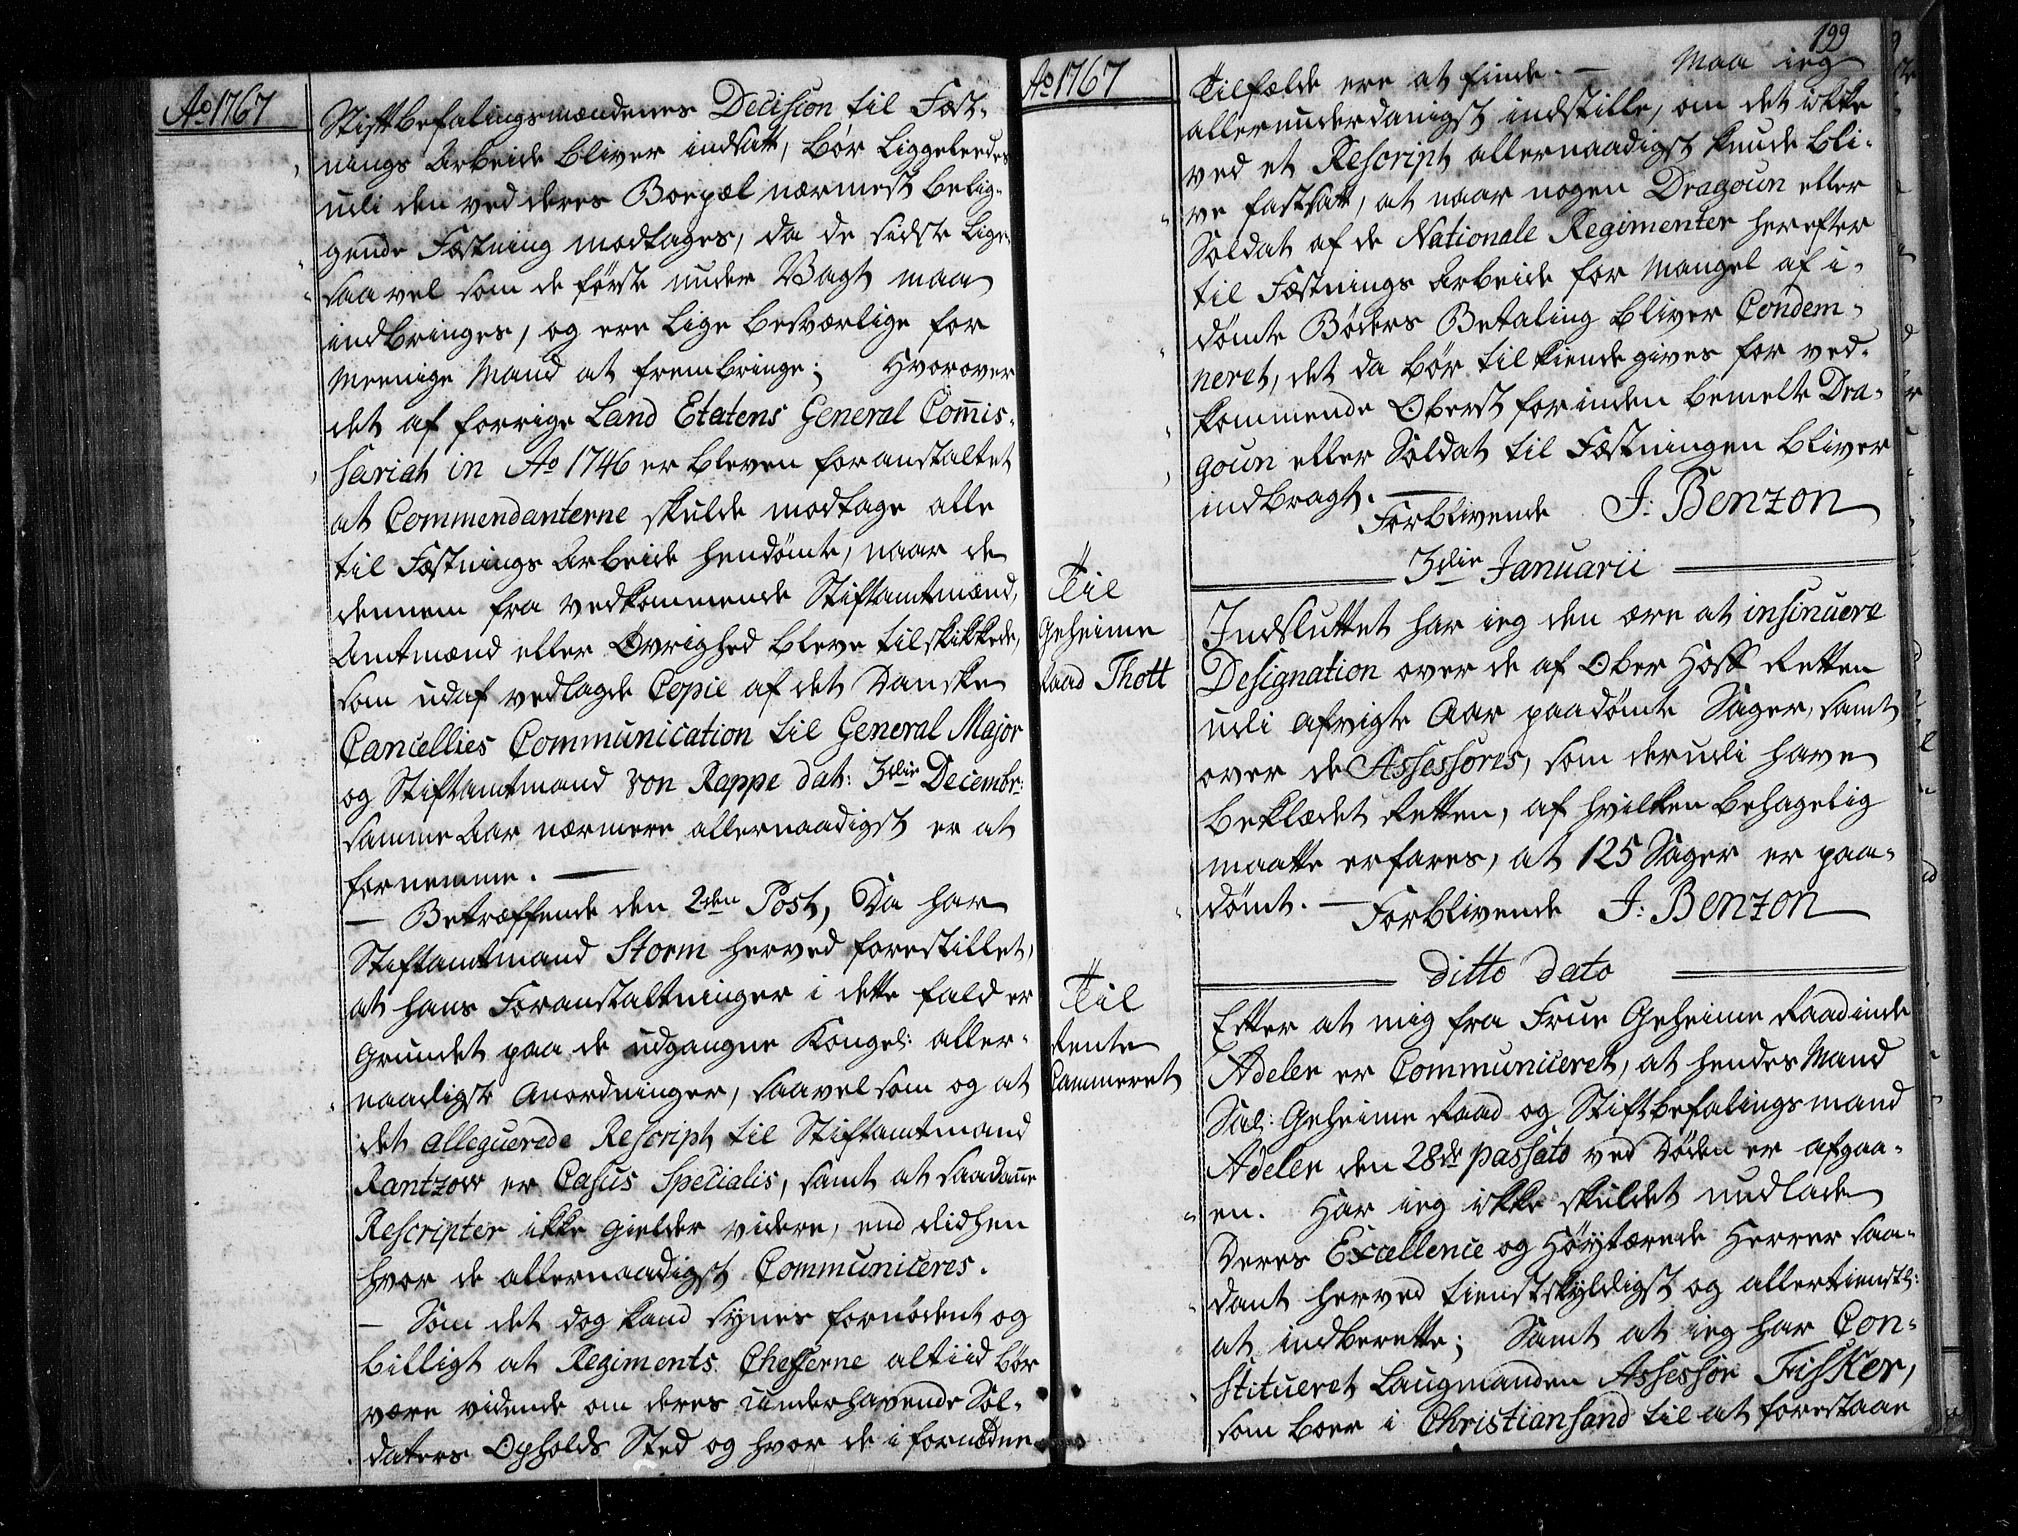 Ao 1767
Stiftbefalingsmændenes Decision til Fæst-
nings Arbeide bliver indsatt, bør liggeleedes
udi den ved deres Boepæl nærmest belig-
gende Fæstning modtages, da de sidste lige-
saavel som de første under Vagt maa
indbringes, og ere lige besværlige for
Meenige Mand at frembringe; Hvorover
det af forrige Land Etatens General Com̄is-
sariat in Ao 1746 er bleven foranstaltet
at Commendanterne skulde modtage alle
til Fæstnings Arbeide hendømte, naar de
dennem fra vedkommende Stiftamtmænd,
Amtmænd eller Øvrighed bleve tilskikkede,
som udaf vedlagde Copie af det Danske
Cancellies Communication til General Major
og Stiftamtmand von Rappe dat: 3die Decembr:
samme Aar nærmere allernaadigst er at
fornemme. —
— Betræffende den 2den Post, Da har
Stiftamtmand Storm herved forestillet,
at hans Foranstaltninger i dette fald er
Grundet paa de udgangne Kongel: aller-
naadigste Anordninger, saavel som og at
det alleguerede Rescript til Stiftamtmand
Rantzow er Casus Specialis, samt at saadan̄e
Rescripter ikke gielder videre, end didhen
hvor de allernaadigst Communiceres.
— Som det dog kand synes fornødent og
billigt at Regiments Chefferne altiid bør
være vidende om deres underhavende Sol-
daters Opholds Sted og hvor de i fornødne
199
Ao 1767
Tilfælde ere at finde. — Maa ieg
allerunderdanigst indstille, om det ikke
ved et Rescript allernaadigst kunde bli-
ve fastsatt, at naar nogen Dragoun eller
Soldat af de Nationale Regimenter herefter
til Fæstnings Arbeide for Mangel af i-
dømte Bøders Betaling bliver Condem-
neret, det da bør tilkiendegives for ved-
kommende Oberst forinden bemelte Dra-
goun eller Soldat til Fæstningen bliver
indbragt. —
Forblivende J: Benzon
3die Januarii
Til
Geheime
Raad Thott
Indsluttet har ieg den ære at insinuere
Designation over de af Ober Hoff Retten
udi afvigte Aar paadømte Sager, samt
over de Assessores, som derudi have
beklædet Retten, af hvilken behagelig
maatte erfares, at 125 Sager er paa-
dømt. — Forblivende J: Benzon
ditto dato
Til
Rente
Cammeret
Efter at mig fra Frue Geheime Raadinde
Adeler er Communiceret, at hendes Mand
Sal: Geheime Raad og Stiftbefalingsmand
Adeler den 28de passato ved Døden er afgaa-
en. Har ieg ikke skuldet undlade
Deres Excellence og Høystærede Herrer saa-
dant herved tienstskyldigst og allertienstl:
at indberette; Samt at ieg har Con-
stitueret Laugmanden Assessor Fisker,
som boer i Christiansand til at forestaae